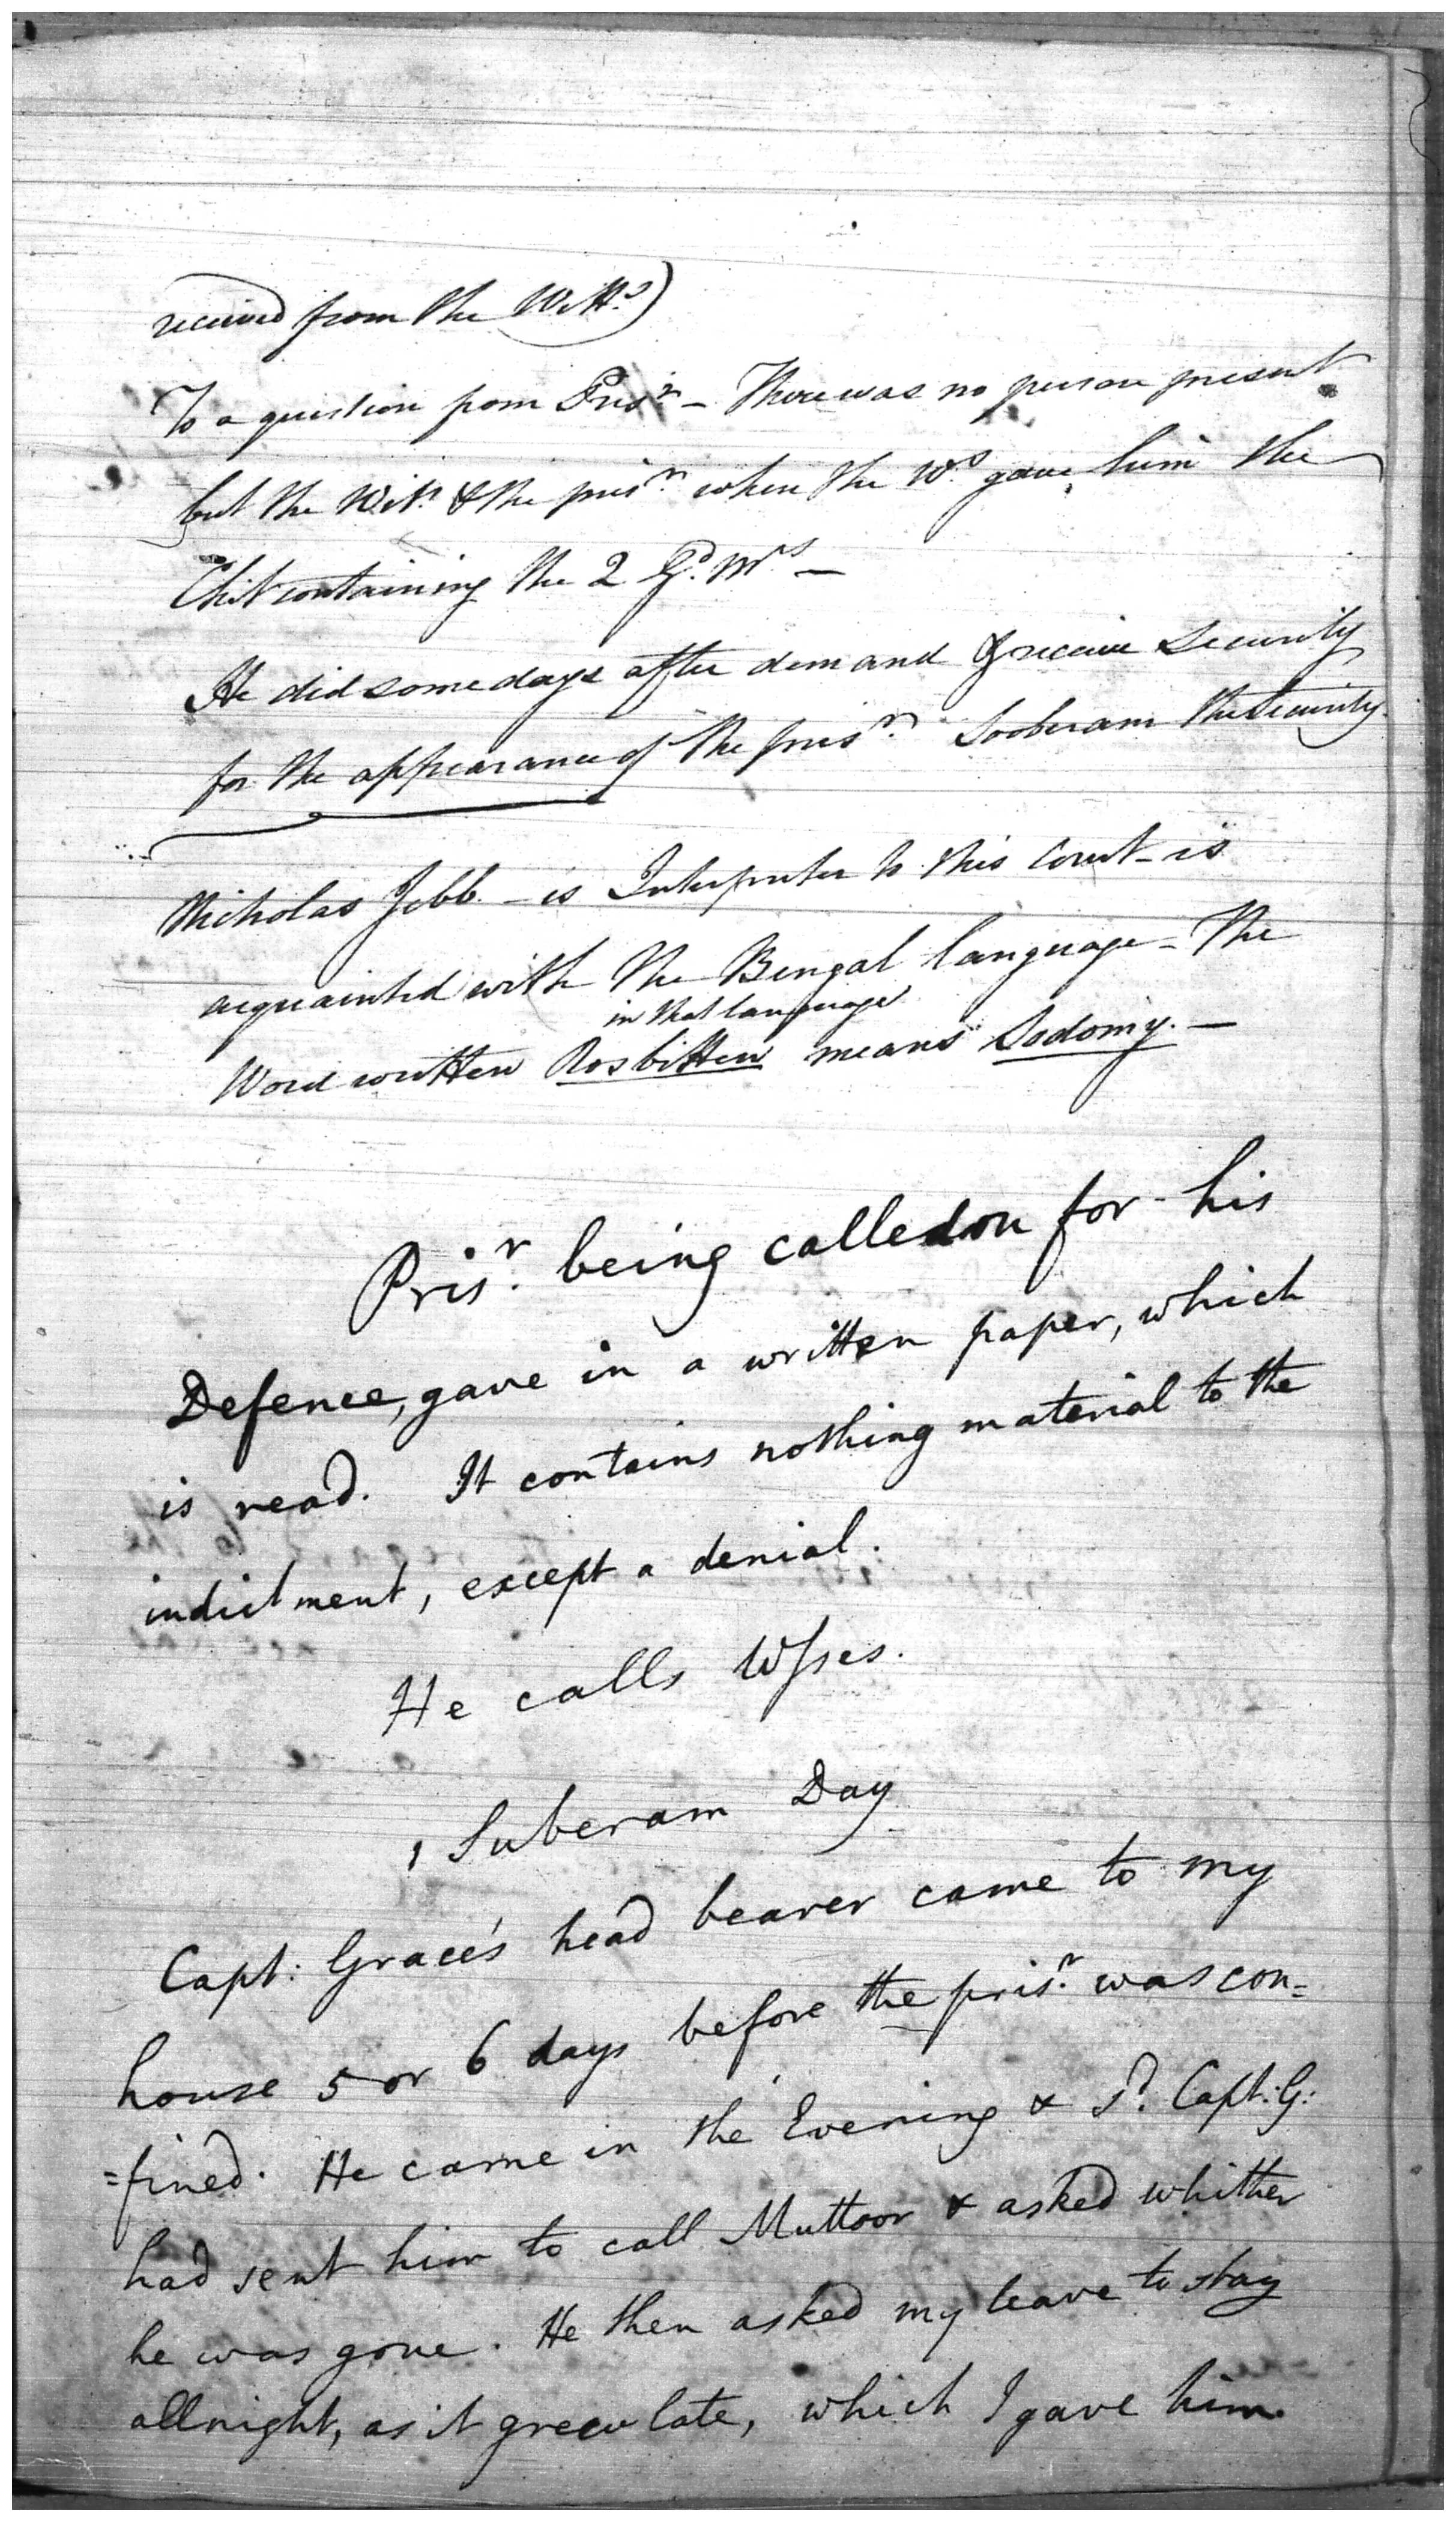 received from the Witts)
To a question from Prisr. - There was no person present
but the Wits. & the prisr. when the Ws. gave him the
Chit containing the 2 Gd. Mrs -
He did some days after demand & receive Security
for the appearance of the prisr. Sooberam the Security
Nicholas Jebb - is Interpreter to this Court - is
acquainted with the Bengal language - The
in that language
Word written Rosbitten means Sodomy. -
Prisr. being called on for his
Defence, gave in a written paper, which
is read. It contains nothing material to the
indictment, except a denial.
He calls Wsses.
1 Suberam Day
Capt: Grace's head bearer came to my
house 5 or 6 days before the prisr. was con=
=fined. He came in the Evening & sd. Capt: G:
had sent him to call Muttoor & asked whither
he was gone. He then asked my leave to stay
all night, as it grew late, which I gave him.